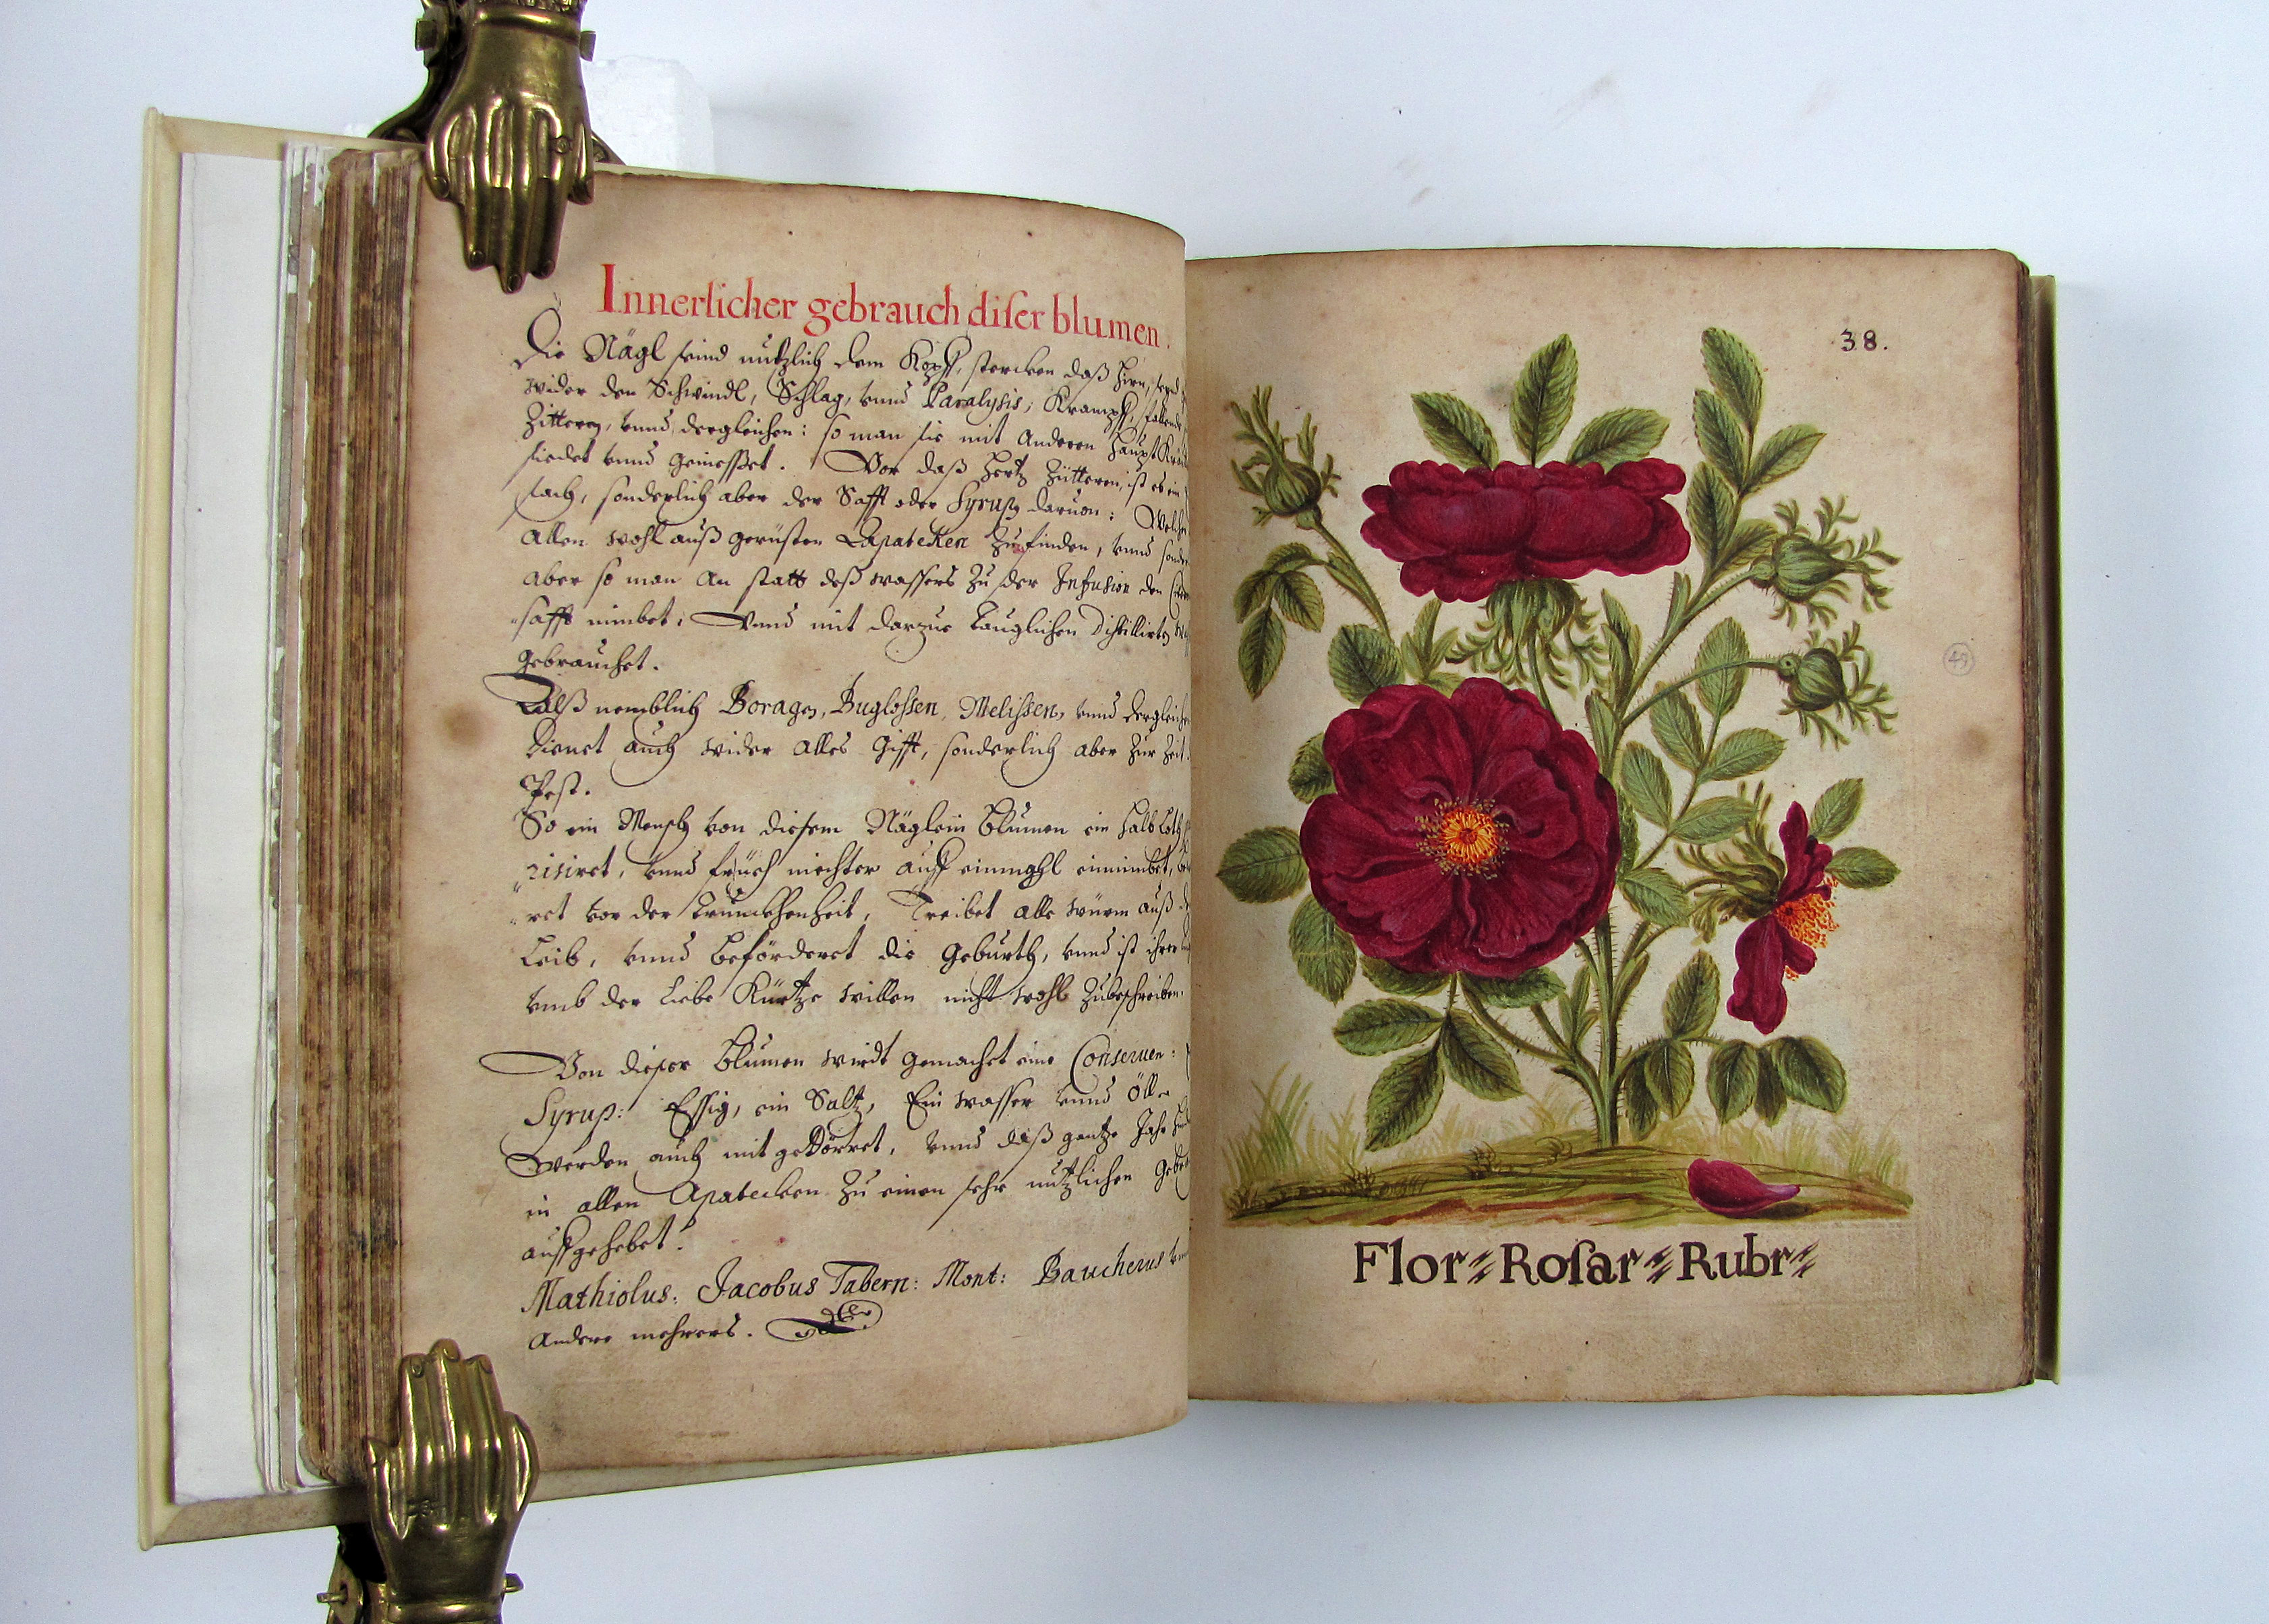 Innerlicher gebrauch diser blumen.
Die Nägl seind nutzlich dem Kopff, stercken daß Hirn, seind
wider den Schwindl, Schlag, vnnd Paralysis, Krampff, fallende
Zittern, vnnd dergleichen: so man sie mit Anderen Haupt
siedet vnnd geniesset. Vor daß Hertz Zütteren, ist es ein
sonderlich aber der Safft oder Syrup daruon: Welcher
Allen wohl auß gerüsten Lapatecken zufinden, vnnd
Aber so man An statt deß wassers zu der Infusion den
safft nimbet: Vnnd mit darzue tauglichen Distillirten
gebrauchet.
Alß nemblich Boragen, Buglossen, Melissen, vnnd dergleichen
Dienet auch wider alles Gifft, sonderlich aber zur Zeit
Pest.
So ein Mensch von diesem Näglein blumen ein halb Loth
risiret, vnnd früeh niechter auff einmahl einnimbet,
ret vor der Trunckhenheit, Treibet alle würm auß
Leib, vnnd befördert die Geburth, vnnd ist ihrer
vmb der liebe Kürtze willen nicht wohl zubeschreiben.
Von dieser Blumen wirdt gemachet eine Conseruen:
Syrup: Essig, ein Saltz, Ein wasser vnnd Öll
Werden auch mit geDörret, vnnd daß gantze Jahr
in allen Apatecken zu einen sehr nutzlichen
auffgehebet.
Mathiolus. Jacobus Tabern: Mont: Baucherus
Andere mehrers.
38.
49
Flor Rosar Rubr